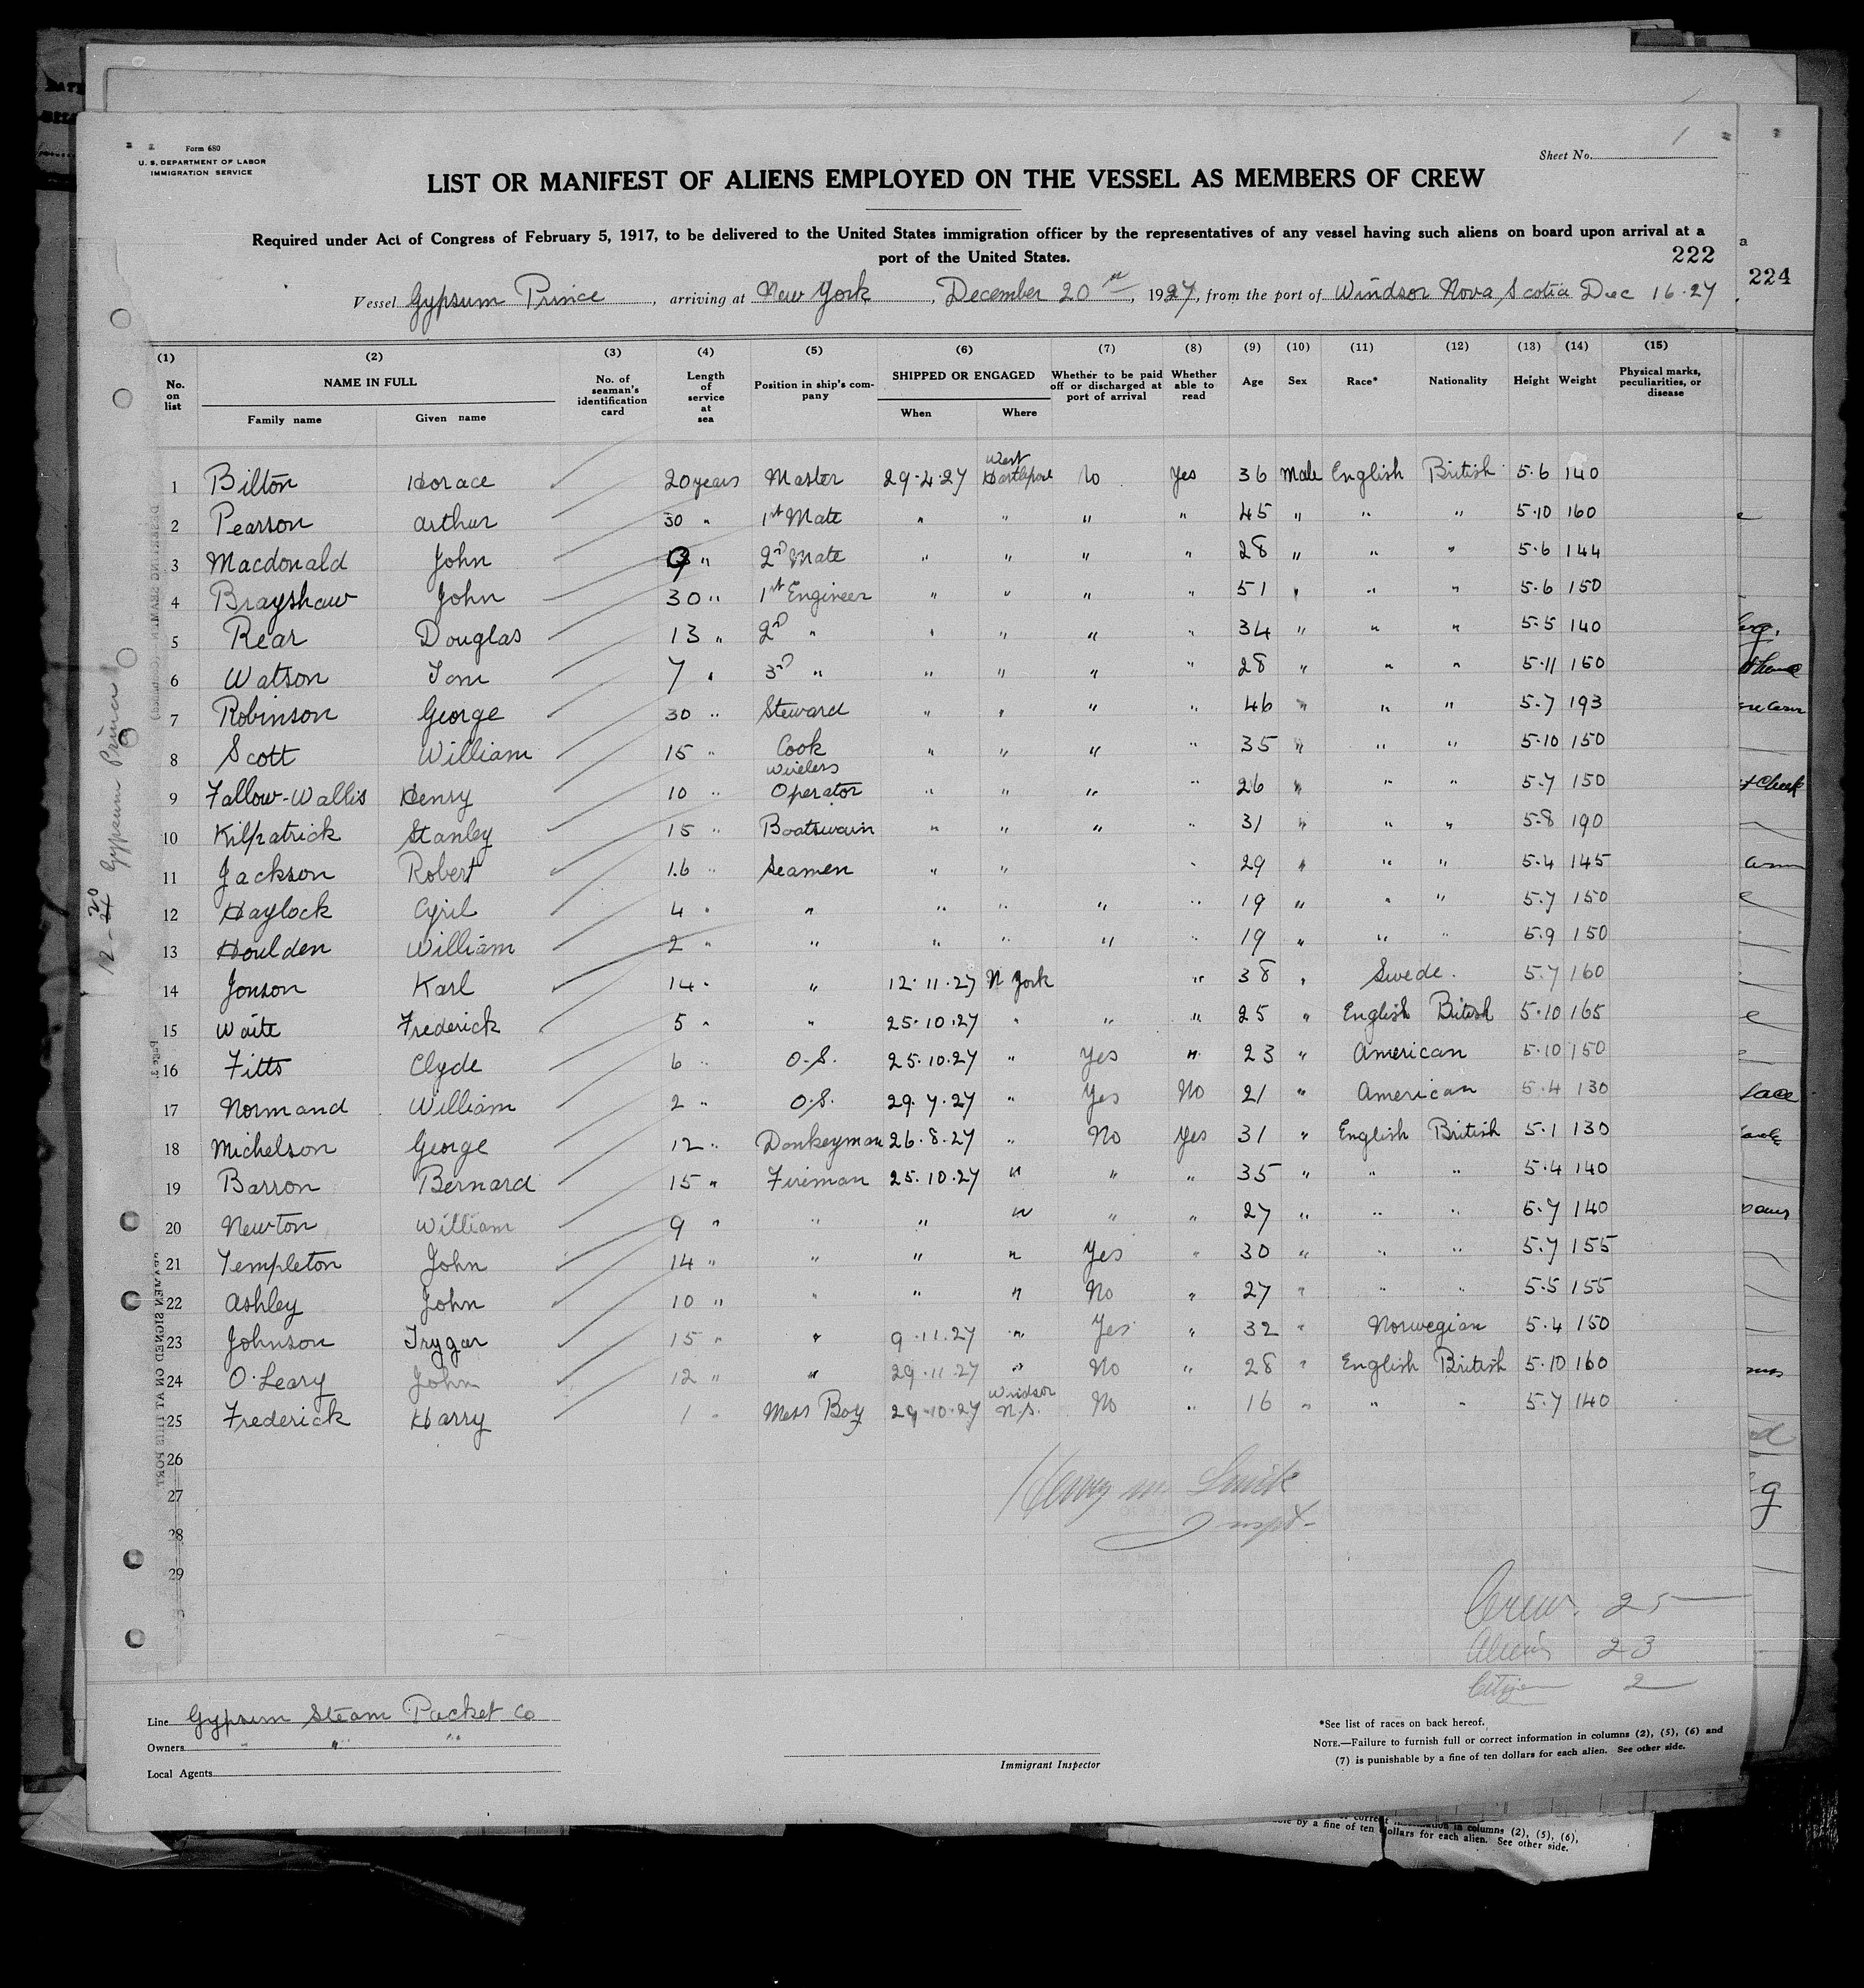 Form 680
U. S. DEPARTMENT OF LABOR
IMMIGRATION SERVICE
Sheet No. 1
LIST OR MANIFEST OF ALIENS EMPLOYED ON THE VESSEL AS MEMBERS OF CREW
Required under Act of Congress of February 5, 1917, to be delivered to the United States immigration officer by the representatives of any vessel having such aliens on board upon arrival at a
port of the United States.
222
224
Vessel Gypsum Prince, arriving at New York, December 20th, 1927, from the port of Windsor Nova Scotia Dec 16-27
(1) (2) (3) (4) (5) (6) (7) (8) (9) (10) (11) (12) (13) (14) (15)
No. on list NAME IN FULL Family name Given name No. of seaman's identification card Length of service at sea Position in ship's company SHIPPED OR ENGAGED When Where Whether to be paid off or discharged at port of arrival Whether able to read Age Sex Race* Nationality Height Weight Physical marks, peculiarities, or disease
1 Bilton Horace 20 years Master 29-4-27 West Hartlepool No Yes 36 Male English British 5.6 140
2 Pearson Arthur 30 " 1st Mate " " " " 45 " " " 5.10 160
3 Macdonald John 9 " 2nd Mate " " " " 28 " " " 5.6 144
4 Brayshaw John 30 " 1st Engineer " " " " 51 " " " 5.6 150
5 Rear Douglas 13 " 2nd " " " " " 34 " " " 5.5 140
6 Watson Tom 7 " 3rd " " " " " 28 " " " 5.11 150
7 Robinson George 30 " Steward " " " " 46 " " " 5.7 193
8 Scott William 15 " Cook " " " " 35 " " " 5.10 150
9 Fallow-Wallis Henry 10 " Wireless Operator " " " " 26 " " " 5.7 150
10 Kilpatrick Stanley 15 " Boatswain " " " " 31 " " " 5.8 190
11 Jackson Robert 16 " Seamen " " " 29 " " " 5.4 145
12 Haylock Cyril 4 " " " " " " 19 " " " 5.7 150
13 Houlden William 2 " " " " " " 19 " " " 5.9 150
14 Jonson Karl 14 " " 12-11-27 N York " 38 " Swede. 5.7 160
15 Waite Frederick 5 " " 25-10-27 " " " 25 " English British 5.10 165
16 Fitts Clyde 6 " O.S. 25-10-27 " Yes " 23 " American 5.10 150
17 Normand William 2 " O.S. 29-7-27 " Yes No 21 " American 5.4 130
18 Michelson George 12 " Donkeyman 26-8-27 " No Yes 31 " English British 5.1 130
19 Barron Bernard 15 " Fireman 25-10-27 " " " 35 " " " 5.4 140
20 Newton William 9 " " " " " " 27 " " " 5.7 140
21 Templeton John 14 " " " " Yes " 30 " " " 5.7 155
22 Ashley John 10 " " " " No " 27 " " " 5.5 155
23 Johnson Trygar 15 " " 9-11-27 " Yes " 32 " Norwegian 5.4 150
24 O'Leary John 12 " " 29-11-27 " No " 28 " English British 5.10 160
25 Frederick Harry 1 " Mess Boy 29-10-27 Windsor N.S. No " 16 " " " 5.7 140
26
27
28
29
Inspt.
Crew. 25
Aliens 23
Citizen 2
Line Gypsum Steam Packet Co
Owners " " "
Local Agents
Immigrant Inspector
*See list of races on back hereof.
NOTE.—Failure to furnish full or correct information in columns (2), (5), (6) and
(7) is punishable by a fine of ten dollars for each alien. See other side.
12-20 Gypsum Prince
in columns (2), (5), (6),
by a fine of ten dollars for each alien. See other side.